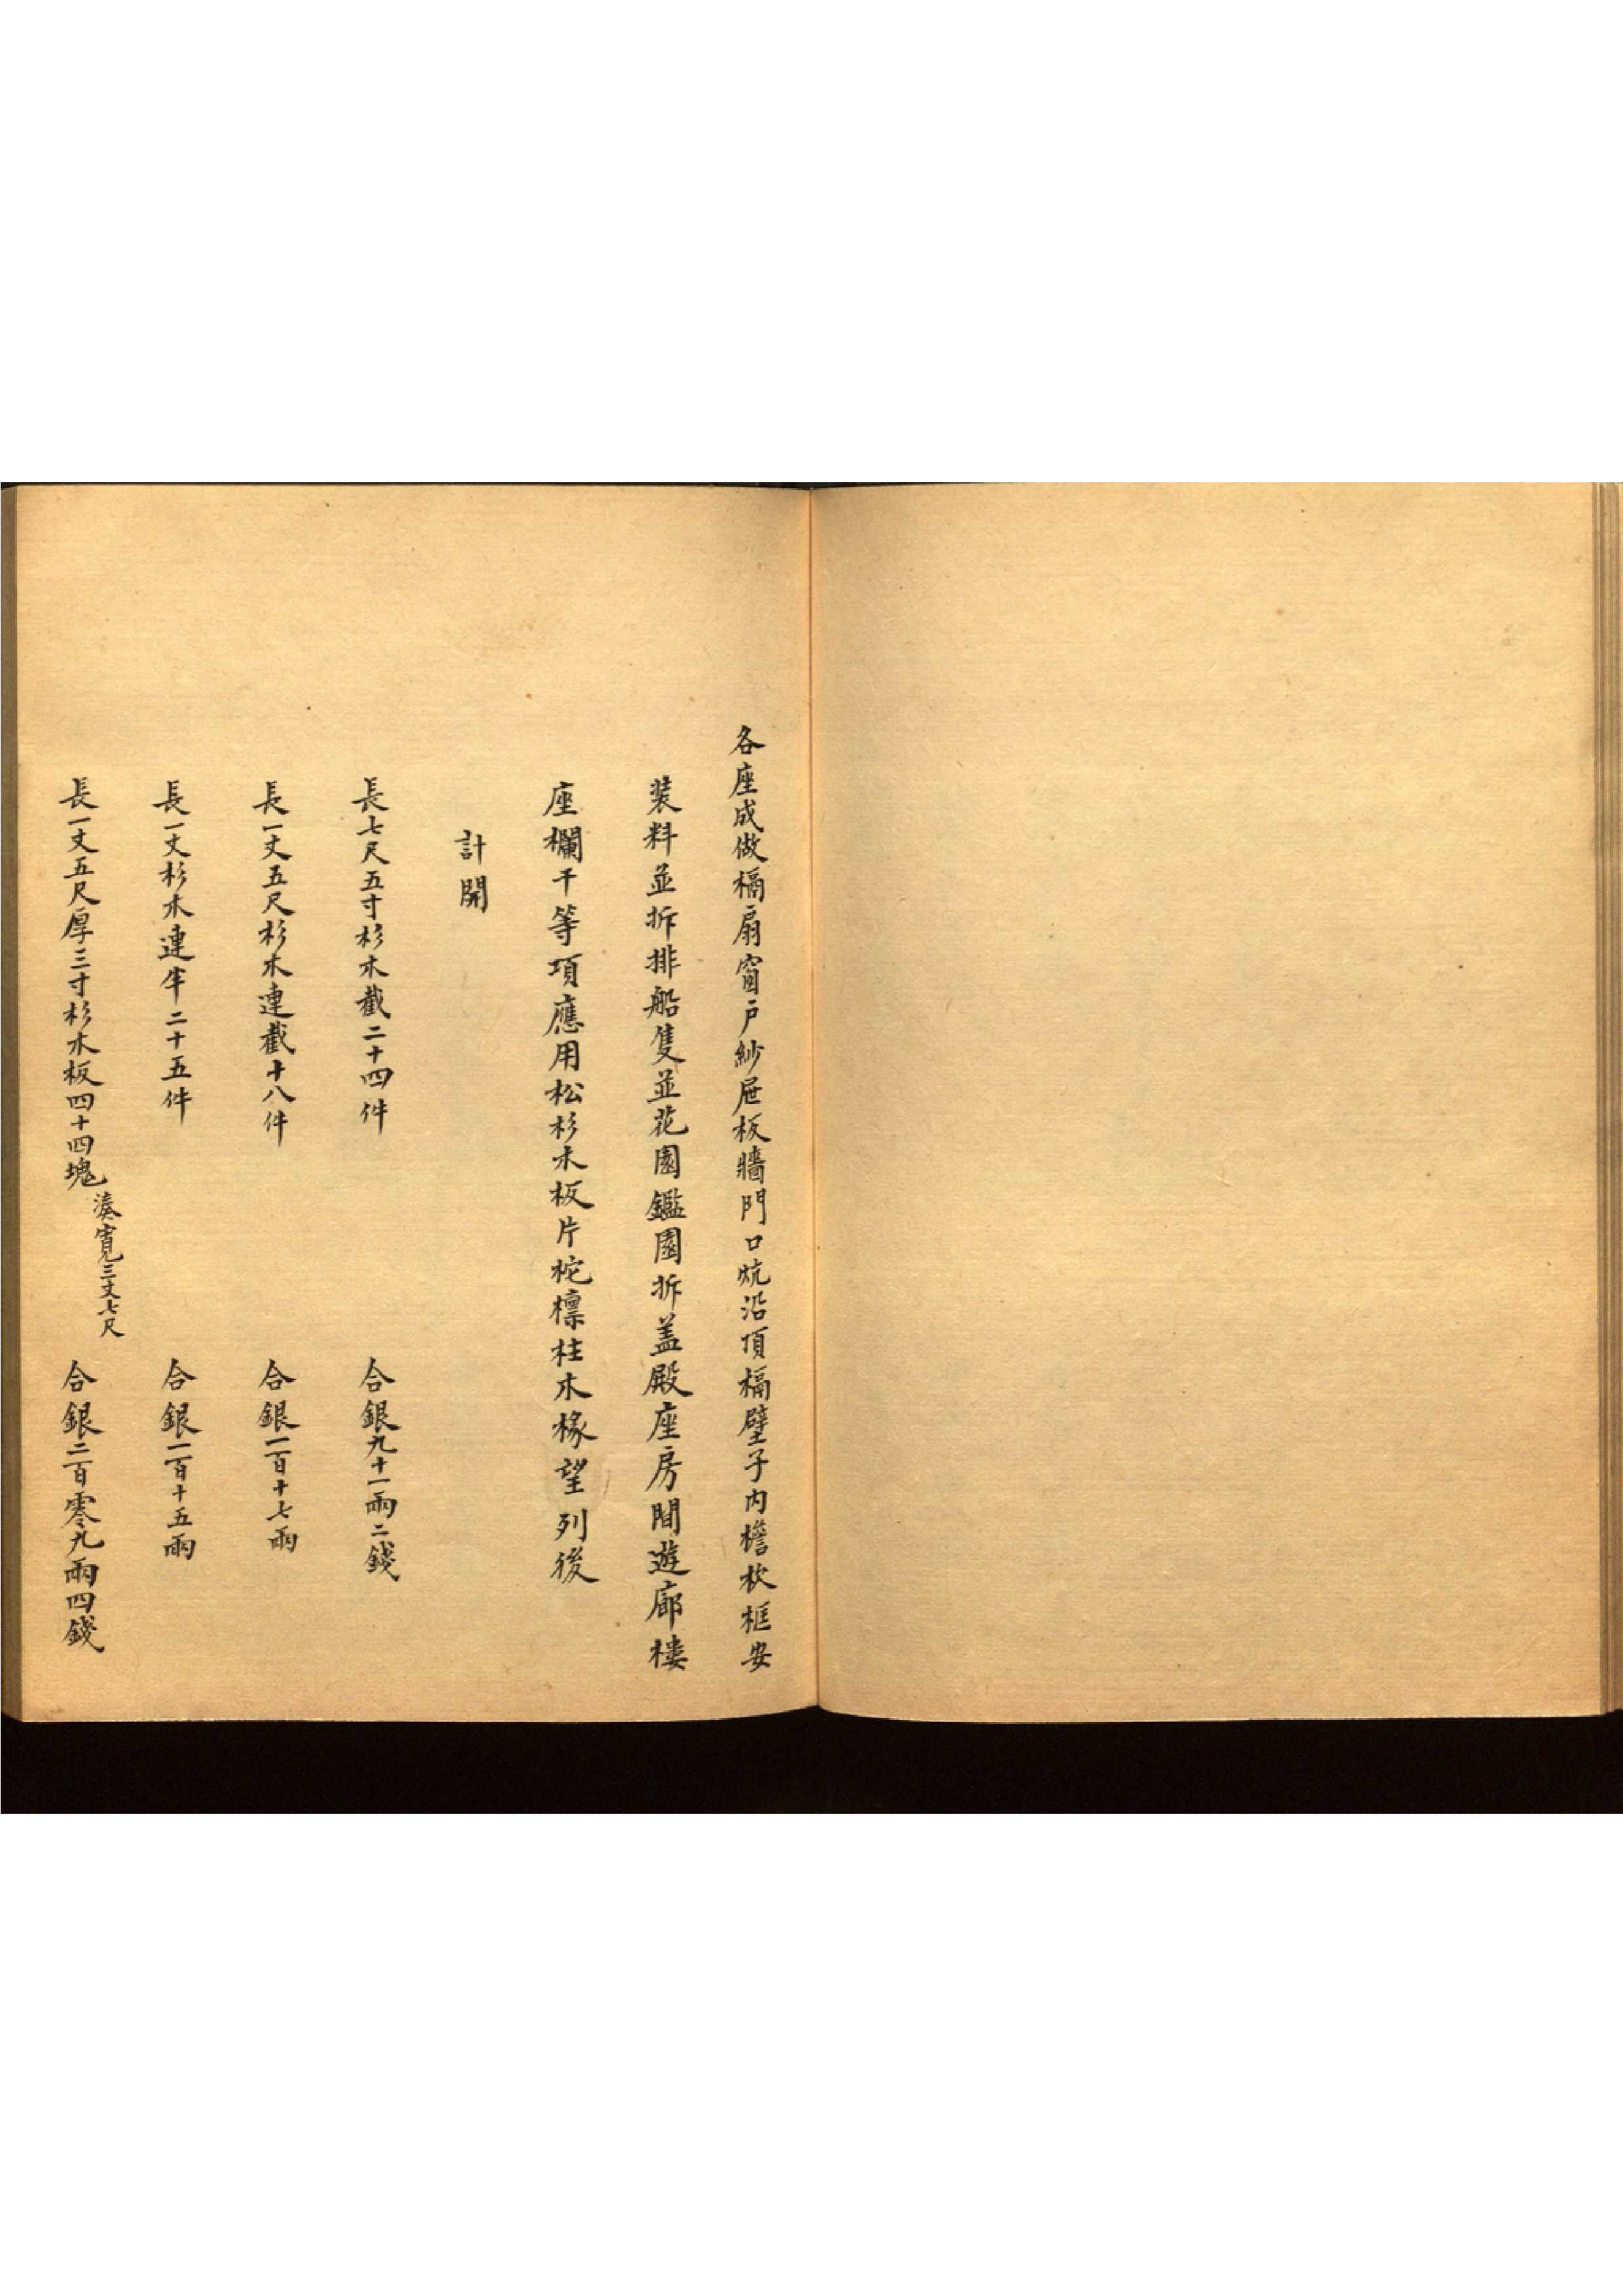 各座成做槅扇窗户紗屉板牆門口炕沿頂槅壁子内檐枕框安
装料並拆排船隻並花園鑑園拆盖殿座房間遊廊樓
座欄干等項應用松杉木板片柁檁柱木椽望列後
計開
長七尺五寸杉木截二十四件 合銀九十一兩二錢
長一丈五尺杉木連截十八件 合銀一百十七兩
長一丈杉木連半二十五件 合銀一百十五兩
長一丈五尺厚三寸杉木板四十四塊 湊寬三丈七尺 合銀二百零九兩四錢